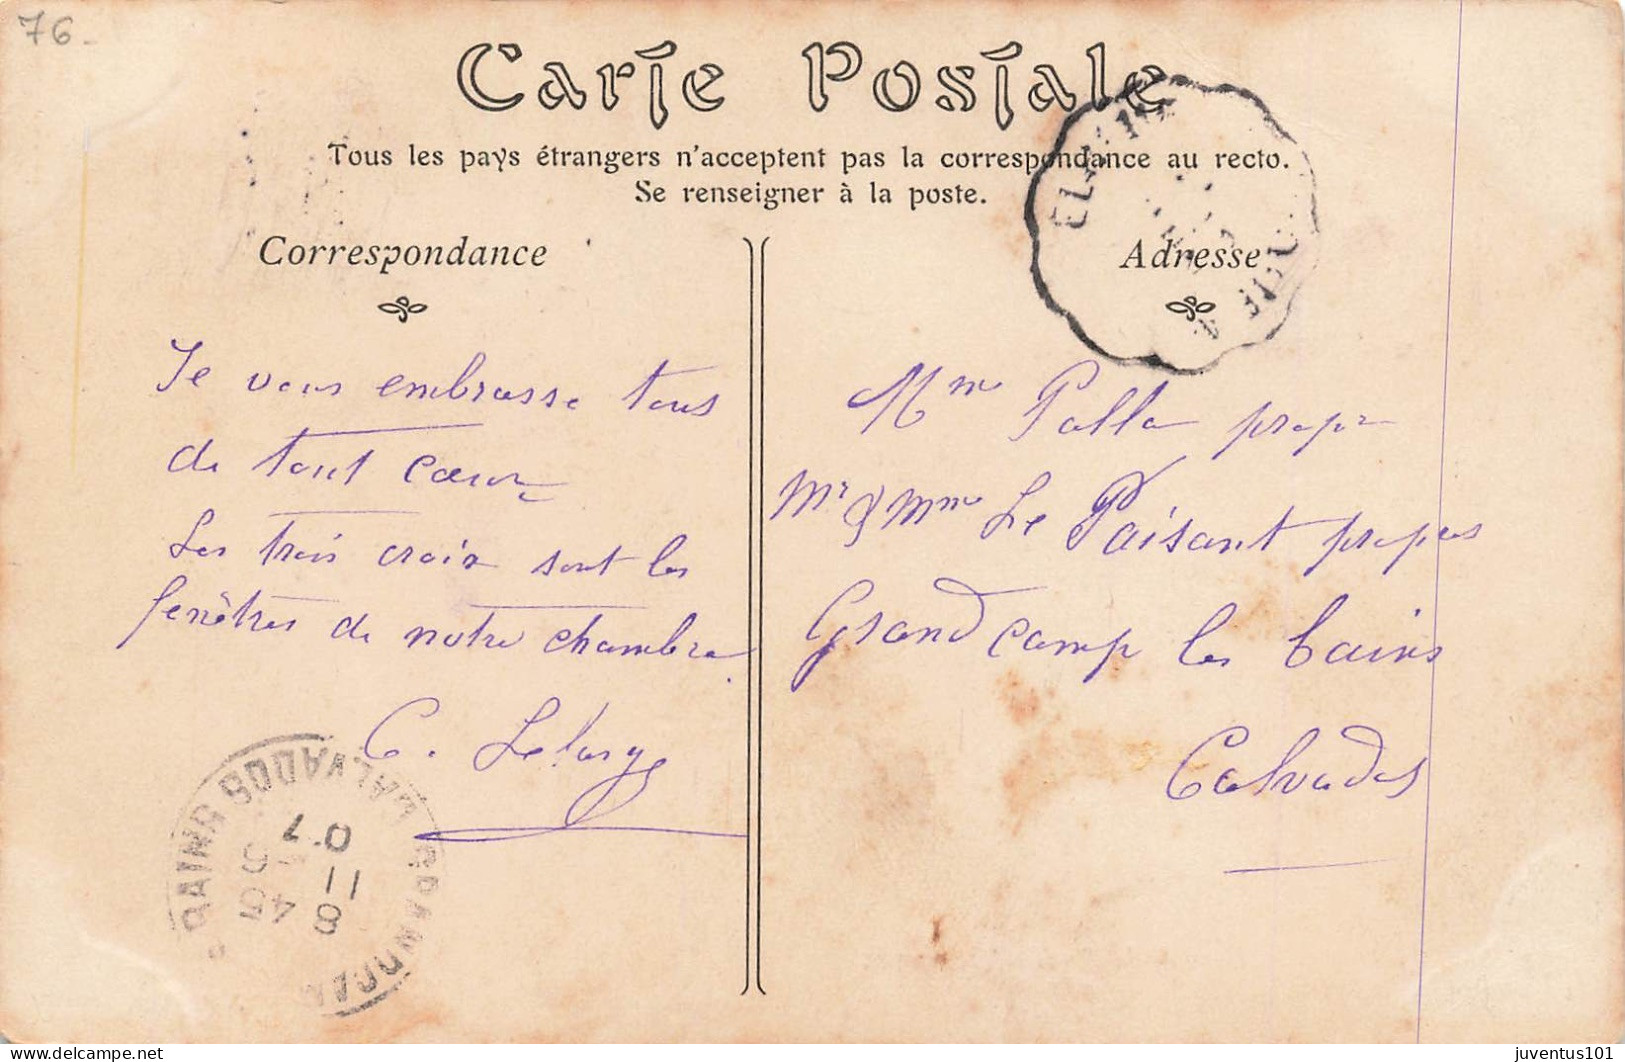 76
Carte Postale
Tous les pays étrangers n'acceptent pas la correspondance au recto.
Se renseigner à la poste.
Correspondance
Je vous embrasse tous
de tout cœur
Les trois croix sont les
fenêtres de notre chambre.
C.
Adresse
Mme Palla propre
Mr & Mme Le Paisant propres
Grandcamp les bains
Calvados
BAINS CALVADOS
8
45
11
07
www.delcampe.net
juventus101